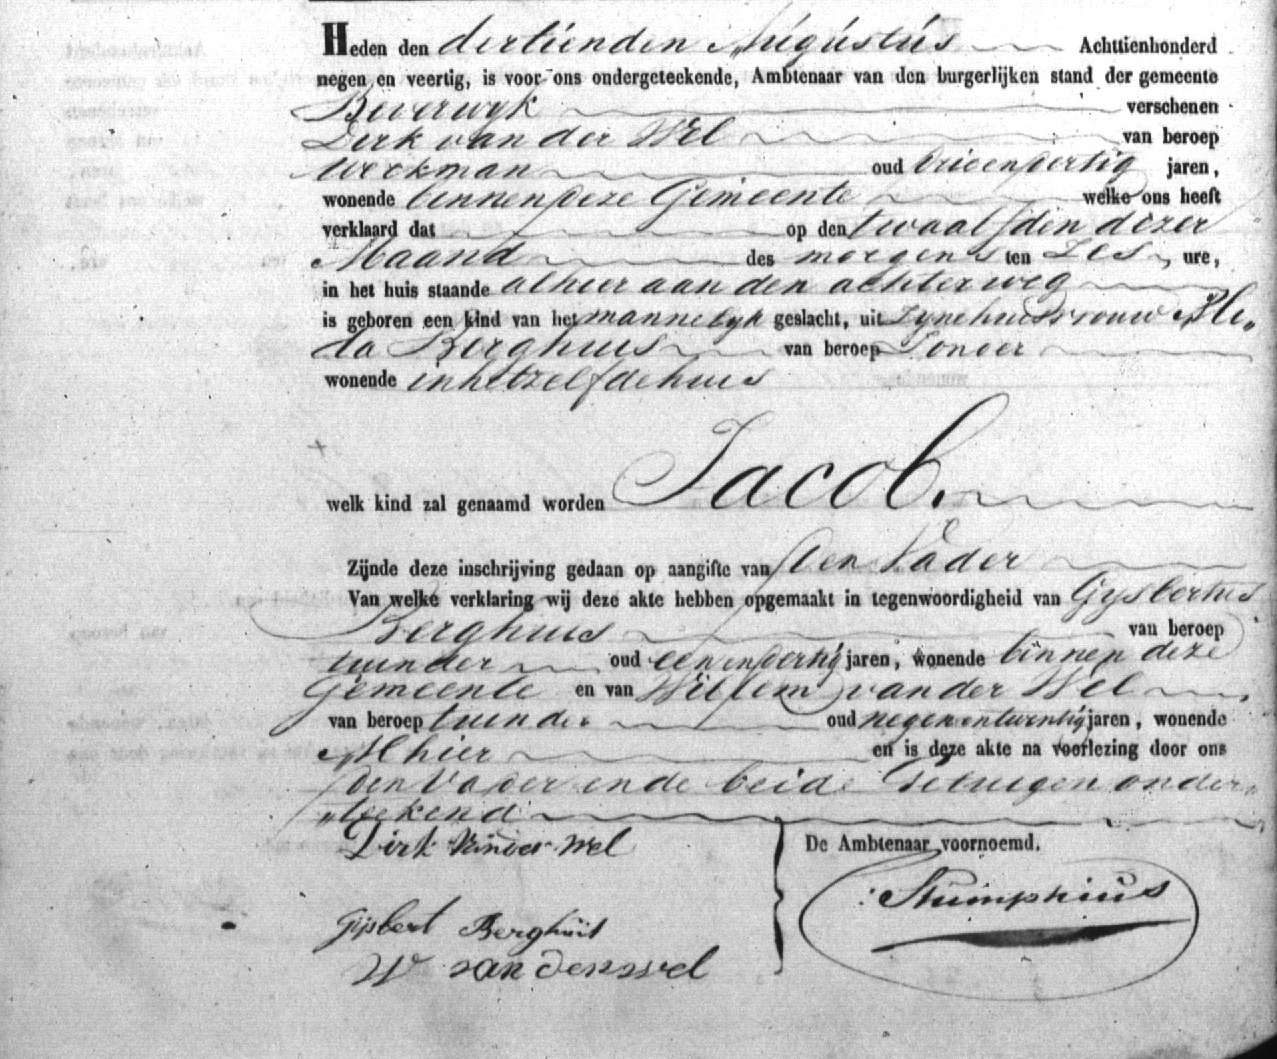 Heden den dertienden Augustus Achttienhonderd
negen en veertig, is voor ons ondergeteekende, Ambtenaar van den burgerlijken stand der gemeente
Beverwyk verschenen
Dirk van der Wel van beroep
Werkman oud drieendertig jaren,
wonende binnen deze Gemeente welke ons heeft
verklaard dat op den twaalfden dezer
Maand des morgens ten Zes ure,
in het huis staande alhier aan den achterweg
is geboren een kind van het mannelyk geslacht, uit Zyne huisvrouw Ale„
da Berghuis van beroep Zonder
wonende in hetzelfde huis
welk kind zal genaamd worden Jacob.
Zijnde deze inschrijving gedaan op aangifte van den Vader
Van welke verklaring wij deze akte hebben opgemaakt in tegenwoordigheid van Gysbertus
Berghuis van beroep
tuinder oud eenendertig jaren, wonende binnen deze
Gemeente en van Willem van der Wel
van beroep tuinder oud negenentwintig jaren, wonende
Alhier en is deze akte na voorlezing door ons
den Vader en de beide Getuigen onder„
„teekend
Dirk van der Wel
De Ambtenaar voornoemd.
Stumphius
Gijsbert Berghuis
W van der wel